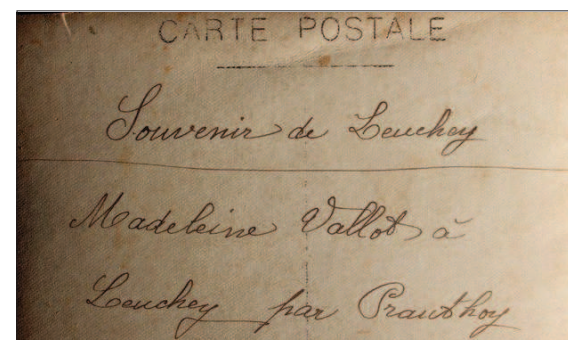 CARTE POSTALE
Souvenir de Leuchey
Madeleine Vallot à
Leuchey par Prauthoy